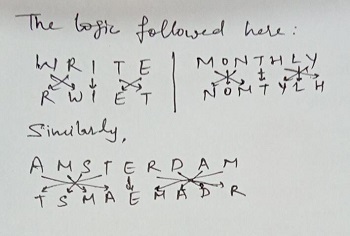 The logic followed here:
W R I T E | M O N T H L Y
R W I E T | N O M T Y L H
Similarly,
A M S T E R D A M
T S M A E M A D R